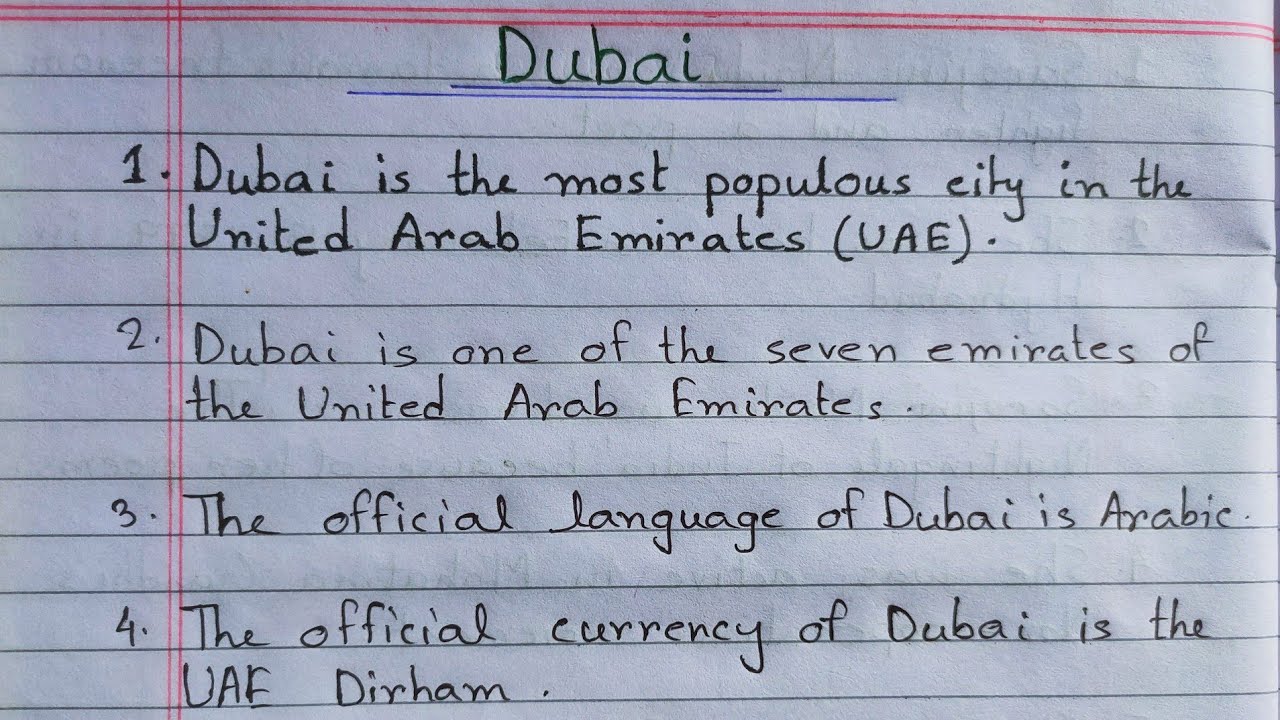 Dubai
1. Dubai is the most populous city in the
United Arab Emirates (UAE).
2. Dubai is one of the seven emirates of
the United Arab Emirates.
3. The official language of Dubai is Arabic.
4. The official currency of Dubai is the
UAE Dirham.